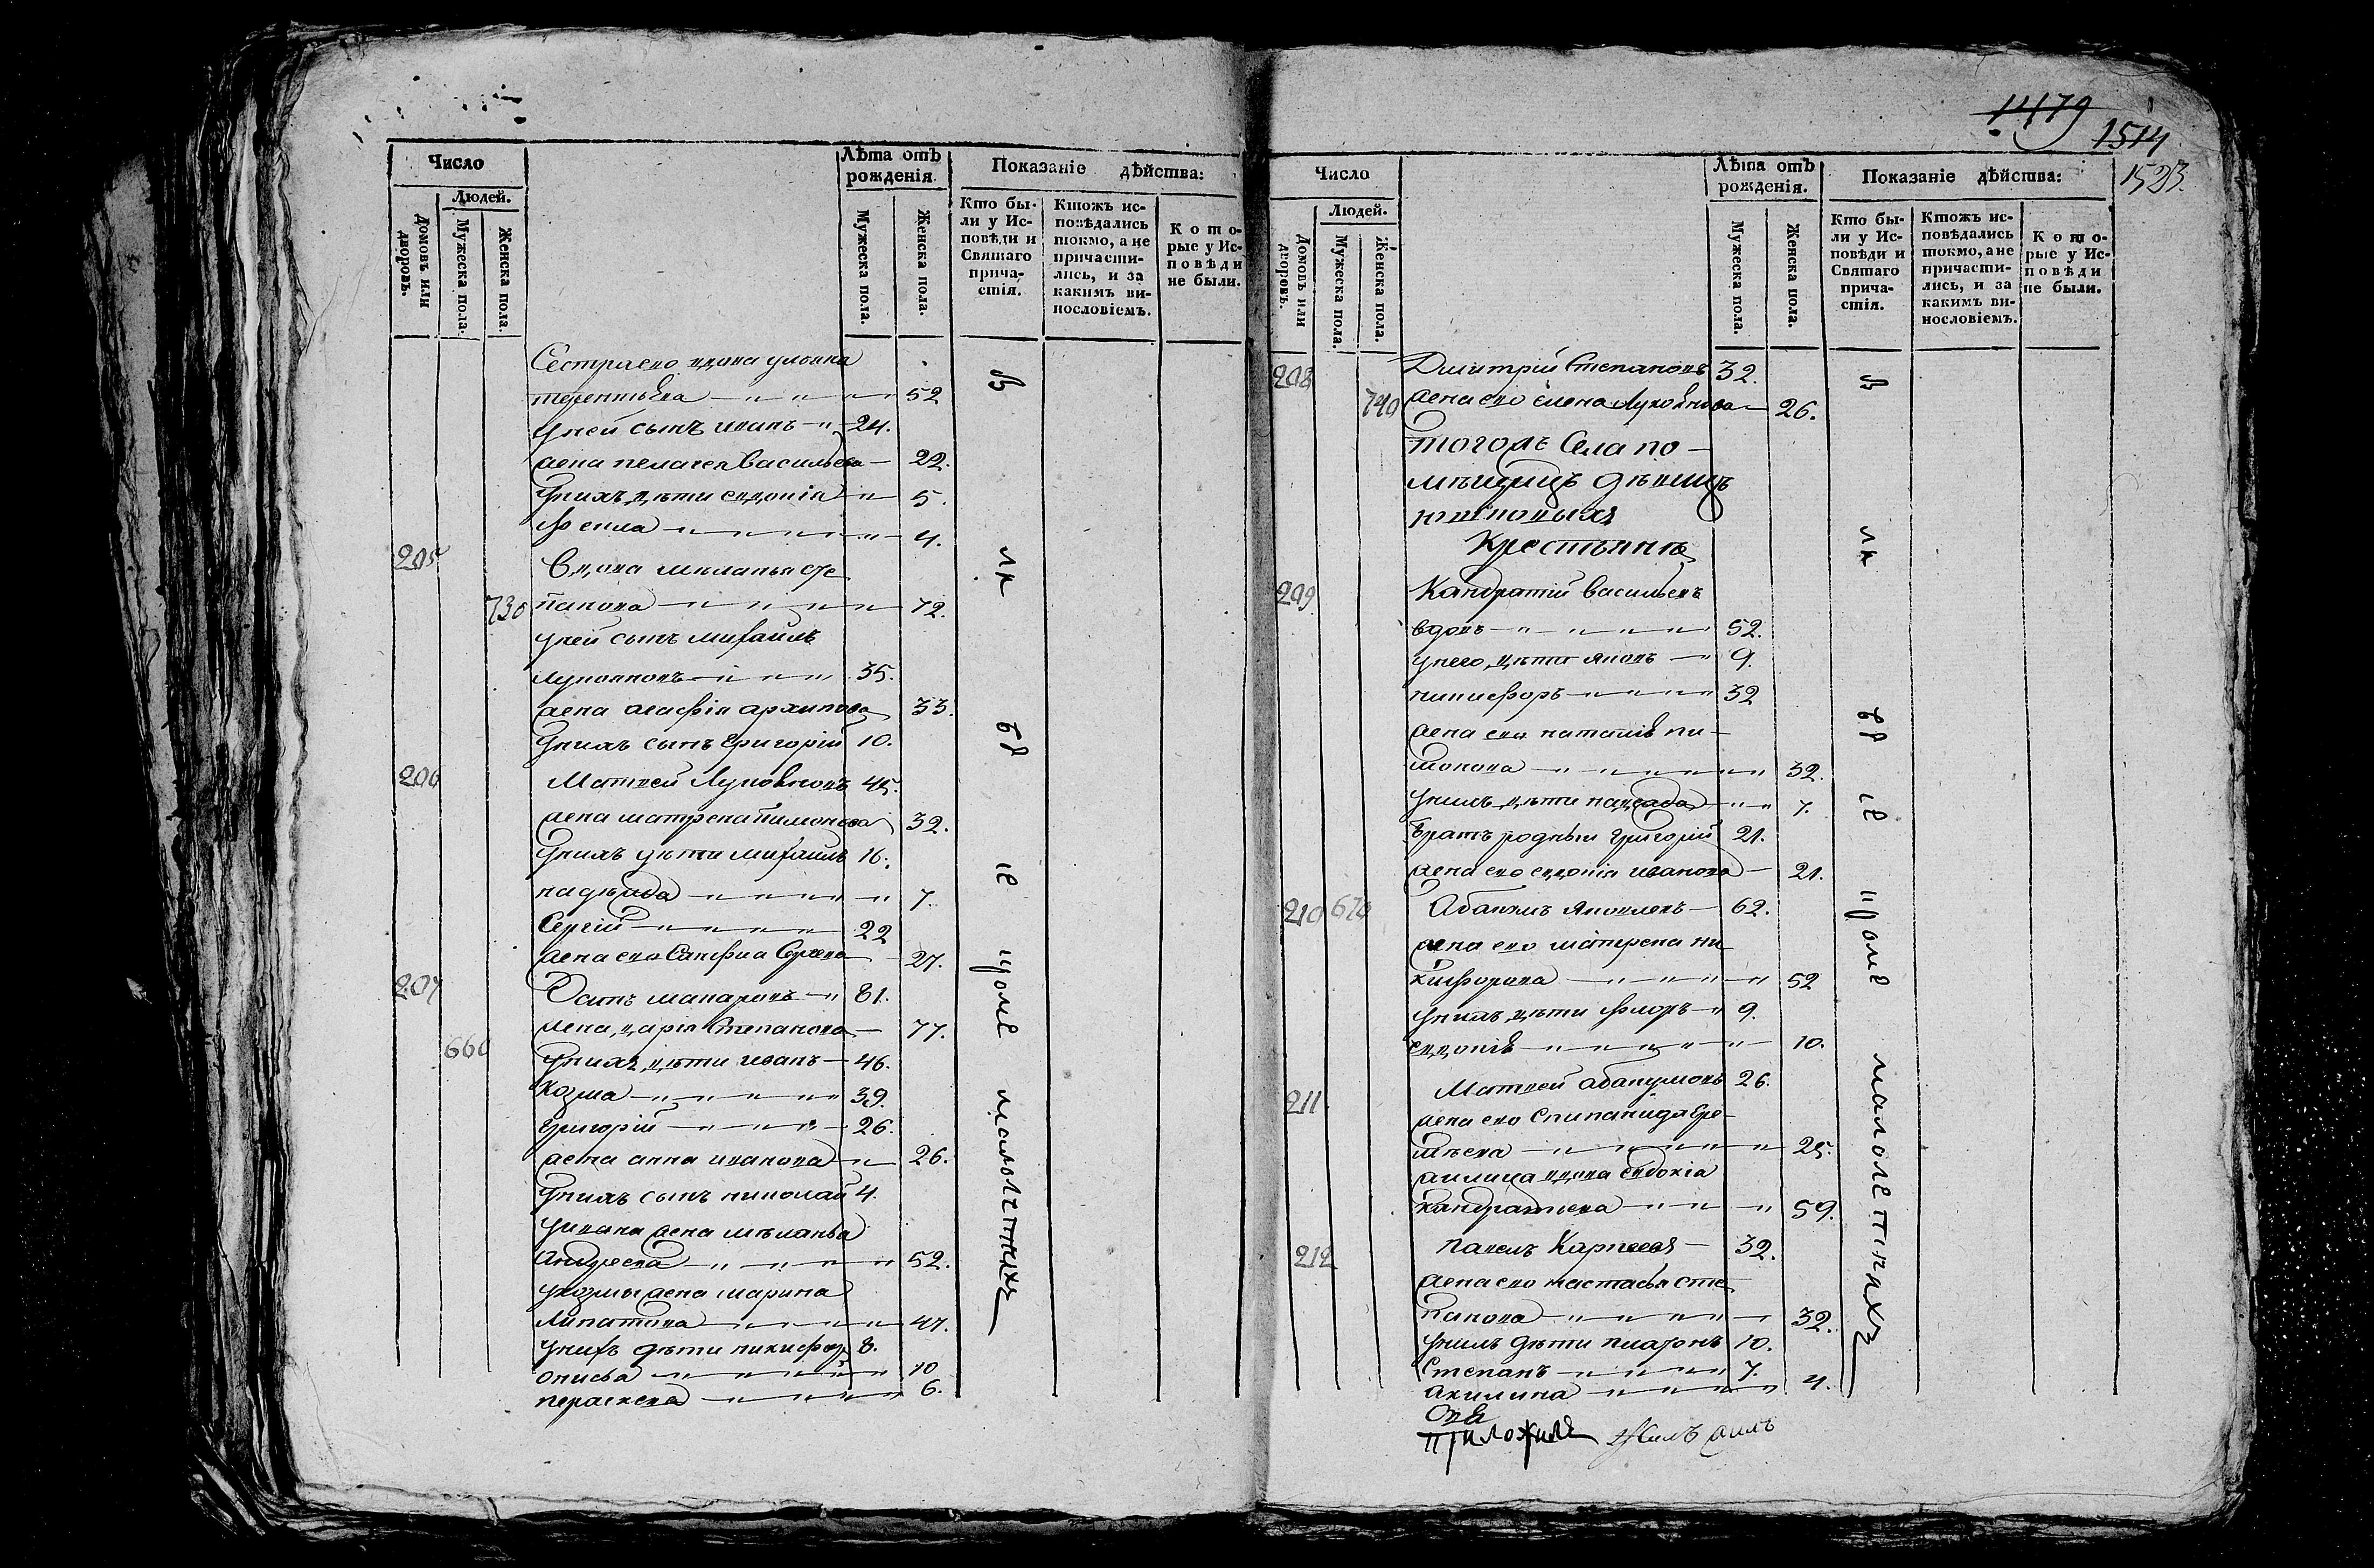 Число
Людей.
Домовъ или дворовъ.
Мужеска пола.
Женска пола.
Лѣта отъ рожденія.
Мужеска пола.
Женска пола.
Показаніе дѣйства:
Кто бы-
ли у Ис-
повѣди и
Святаго
прича-
стія.
Ктожъ ис-
повѣдались
токмо, а не
причасти-
лись, и за
какимъ ви-
нословіемъ.
Кото-
рые у Ис-
повѣди
не были.
Сестра его вдова улиана
терентьева 52
уней сынъ иванъ 24.
жена пелагея Васильева 22.
унихъ дѣти евдокіа 5.
Фекла 4.
205 Вдова меланья сте
730 панова 72.
уней сынъ михаилъ
лукояновъ 35.
жена агафія архипова 33.
унихъ сынъ григорій 10.
206 Матвей Лукояновъ 45.
жена матрена пимонова 32.
унихъ дѣти михаилъ 16.
надежда 7.
Сергій 22
жена его 27.
207 макаровъ 81.
жена дарія Степанова 77.
660 унихъ дѣти иванъ 46.
Козма 39.
григорій 26.
жена анна иванова 26.
унихъ сынъ николай 4.
уивана жена меланья
Андреева 52.
укозмы жена марина
Липатова 47.
унихъ дѣти никифор 8.
10
параскева 6.
В
ік
малолетнихъ
1479
1514
1523.
Число
Людей.
Домовъ или дворовъ.
Мужеска пола.
Женска пола.
Лѣта отъ рожденія.
Мужеска пола.
Женска пола.
Показаніе дѣйства:
Кто бы-
ли у Ис-
повѣди и
Святаго
прича-
стія.
Ктожъ ис-
повѣдались
токмо, а не
причасти-
лись, и за
какимъ ви-
нословіемъ.
Кото-
рые у Ис-
повѣди
не были.
208 Димитрій Степановъ 32.
740 жена его елена Лукоянова 26.
тогожъ Села по-
мѣщицъ дѣвицъ
Крестьяне
209 Кандратій васильевъ
вдовъ 52.
унего дѣти яковъ 9.
никифоръ 32
жена его наталія пи-
монова 32.
унихъ дѣти надежда 7.
братъ родный григорій 21.
жена его евдокія иванова 21.
210 670 Абакумъ яковлевъ 62.
жена его матрена ни
кифорова 52
унихъ дѣти флоръ 9.
евдокія 10.
211 Матвей абакумовъ 26.
жена его Спиланида ере-
мѣева 25.
вдова евдокіа
кандратьева 59.
212 павелъ Карпеевъ 32.
жена его настасья сте
панова 32.
унихъ дѣти платонъ 10.
Степанъ 7.
акилина 4.
приложилъ
малолетнихъ